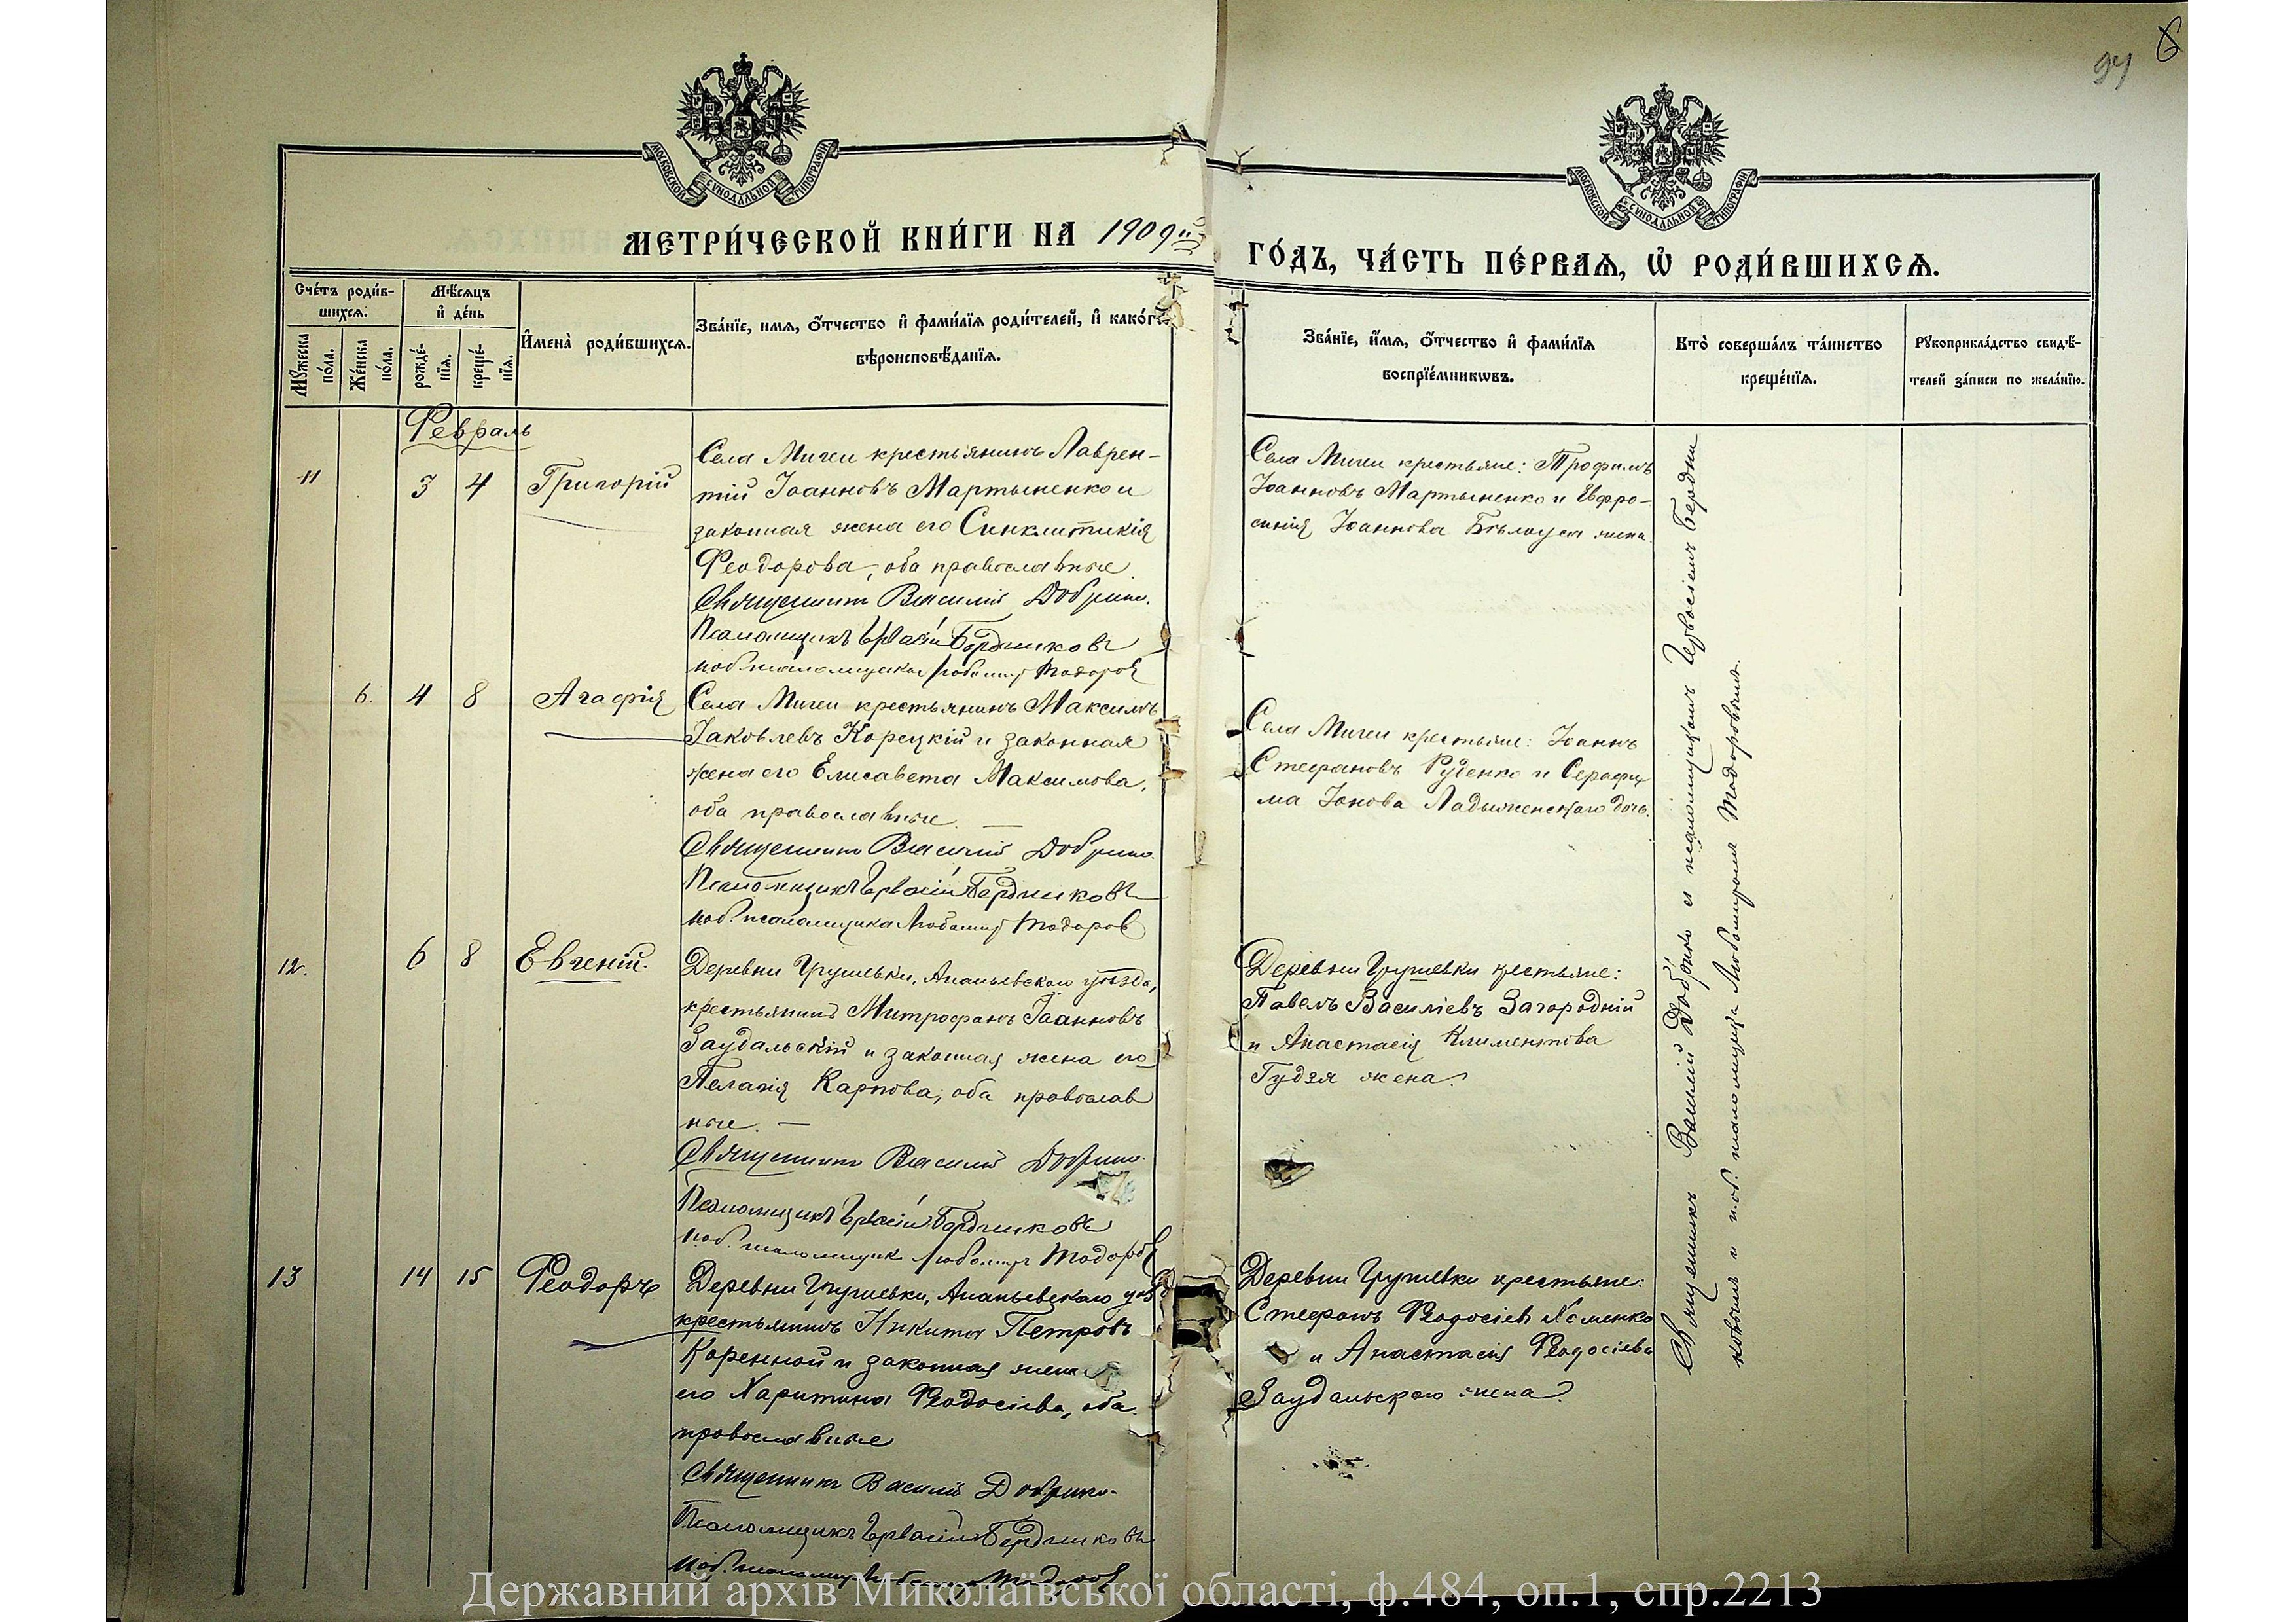 94
МОСКОВСКОЙ СѴНОДАЛЬНОЙ ТИПОГРАФІИ
МОСКОВСКОЙ СѴНОДАЛЬНОЙ ТИПОГРАФІИ
МЕТРИ́ЧЕСКОЙ КНИ́ГИ НА 1909й
ГО́ДЪ, ЧА́СТЬ ПЕ́РВАѦ, Ѡ҆ РОДИ́ВШИХСѦ.
Сче́тъ роди́в-
шихсѧ.
Мꙋ́жеска по́ла.
Же́нска по́ла.
Мѣ́сѧцъ
и҆ де́нь
рожде́-
нїѧ.
креще́-
нїѧ.
И҆мена̀ роди́вшихсѧ.
Зва́нїе, имѧ, ѻ҆́тчество и҆ фами́лїѧ роди́телей, и҆ како́г
вѣроисповѣ́данїѧ.
Зва́нїе, и҆́мѧ, ѻ҆́тчество и҆ фами́лїѧ
воспрїе́мникωвъ.
Кто̀ соверша́лъ та́инство
креще́нїѧ.
Рꙋкоприкла́дство свидѣ́-
телей за́писи по жела́нїю.
Февраль
11
3 4
Григорій
Села Мигеи крестьянинъ Лаврен-
тій Іоанновъ Мартыненко и
законная жена его Синклитикія
Феодорова, оба православные
Священникъ Василій Добряно.
Псаломщикъ Гервасій Бердниковъ
и об. псаломщика Любомиръ Тодоровъ
Села Мигеи крестьяне: Трофимъ
Іоанновъ Мартыненко и Евфро-
синія Іоаннова Бѣлоуса жена.
6.
4 8
Агафія
Села Мигеи крестьянинъ Максимъ
Іаковлевъ Корецкій и законная
жена его Елисавета Максимова,
оба православные.
Священникъ Василій
Псаломщикъ Гервасій Бердниковъ
и об. псаломщика Любомиръ Тодоровъ
Села Мигеи крестьяне: Іоаннъ
Стефановъ Руденко и Серафи
ма Іонова Ладыженскаго дочь.
12.
6 8
Евгеній.
Деревни Грушевки, Ананьевскаго уѣзда,
крестьянинъ Митрофанъ Іоанновъ
Заудальскій и законная жена его
Пелагія Карпова, оба православ
ные. —
Священникъ Василій
Псаломщикъ Гервасій Бердниковъ
и об. псаломщик Любомиръ Тодоровъ
Деревни Грушевки крестьяне:
Павелъ Василіевъ Загородній
и Анастасія Климентова
Гудзя жена.
13
14 15
Феодоръ
Деревни Грушевки, Ананьевскаго уѣз
крестьянинъ Никита Петровъ
Коренной и законная жена
его Харитина Феодосіева, оба
православные
Священникъ Василій
Псаломщикъ Гервасій Бердниковъ
и об. псаломщ Тодоровъ
Деревни Грушевки крестьяне:
Стефанъ Феодосіевъ Хоменко
и Анастасія Феодосіева
Заудальскаго жена.
Священникъ Василій съ псаломщикомъ Гервасіемъ Бердни
ковымъ и и.об. псаломщика Любомиромъ Тодоровымъ.
Державний архів Миколаївської області, ф.484, оп.1, спр.2213